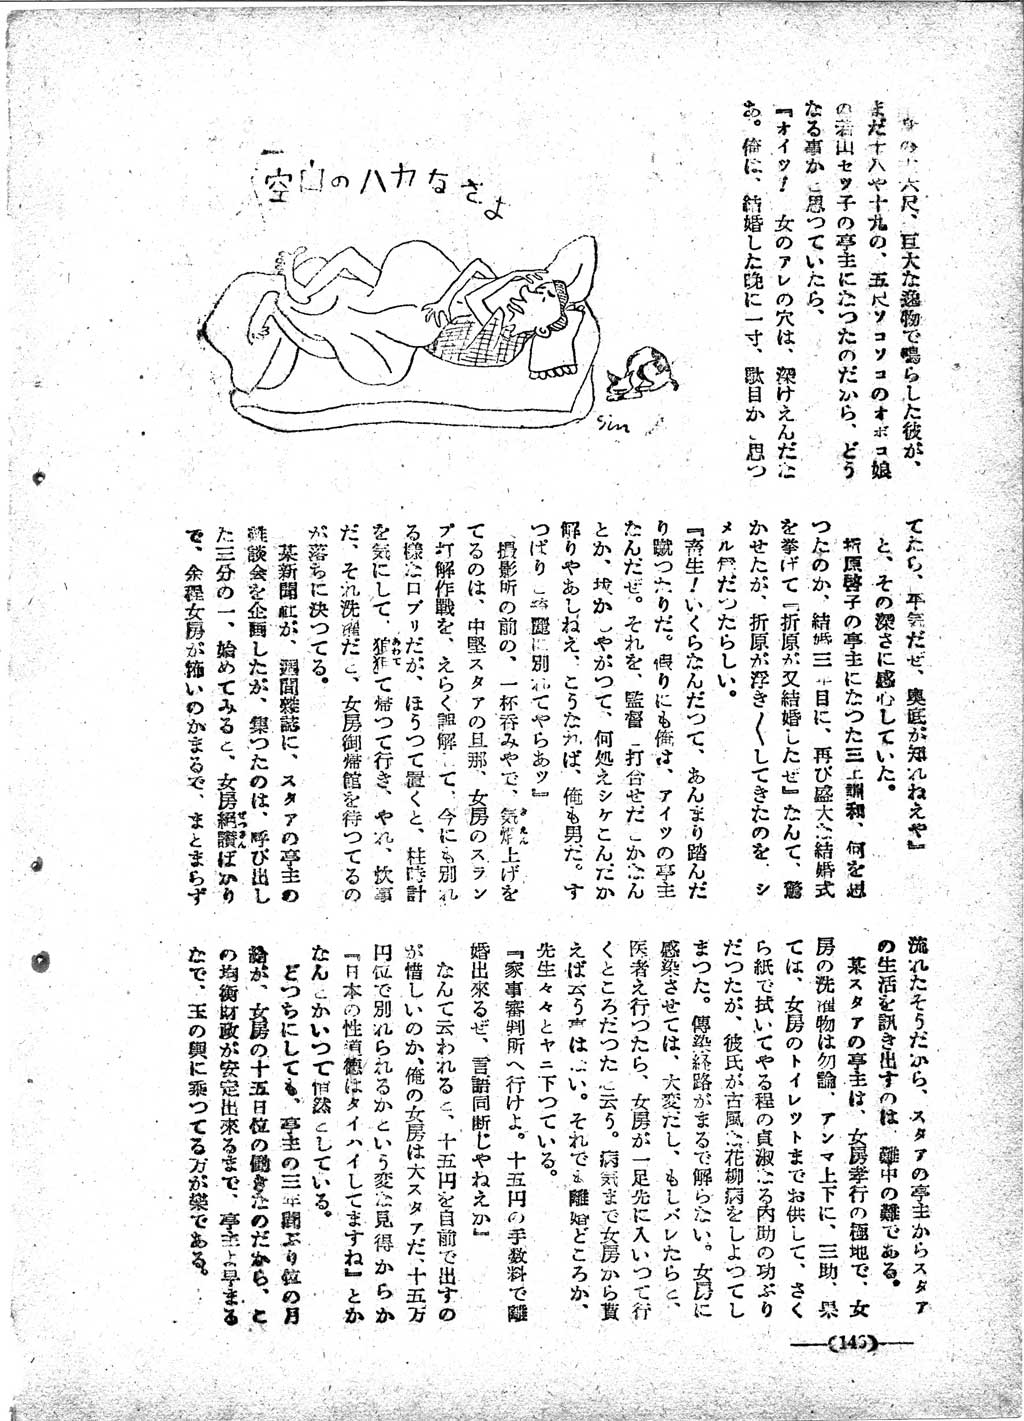 六尺、巨大な逸物で鳴らした彼が、
まだ十八や十九の、五尺ソコソコのオボコ娘
の若山セツ子の亭主になつたのだから、どう
なる事かと思つていたら、
『オイツ! 女のアレの穴は、深けえんだな
あ。俺は、結婚した晩に一寸、駄目かと思つ
空白のハカなさよ
sin
てたら、平気だぜ、奥底が知れねえや』
と、その深さに感心していた。
折原啓子の亭主になつた三上訓和、何を思
つたのか、結婚三年目に、再び盛大な結婚式
を挙げて『折原が又結婚したぜ』なんて、驚
かせたが、折原が浮き〱してきたのを、シ
メル気だつたらしい。
『畜生!いくらなんだつて、あんまり踏んだ
り蹴つたりだ。仮りにも俺は、アイツの亭主
なんだぜ。それを、監督と打合せだとかなん
とか、ぬかしやがつて、何処えシケこんだか
解りやあしねえ、こうなれば、俺も男だ。す
つぱりと綺麗に別れてやらあッ』
撮影所の前の、一杯呑みやで、気焔上げを
てるのは、中堅スタアの旦那、女房のスラン
プ打解作戦を、えらく誤解して、今にも別れ
る様な口ブリだが、ほうつて置くと、柱時計
を気にして、狼狽て帰つて行き、やれ、炊事
だ、それ洗濯だと、女房御帰館を待つてるの
が落ちに決つてる。
某新聞社が、週間雑誌に、スタアの亭主の
雑談会を企画したが、集つたのは、呼び出し
た三分の一、始めてみると、女房絶讃ばかり
で、余程女房が怖いのかまるで、まとまらず
流れたそうだから、スタアの亭主からスタア
の生活を訊き出すのは、難中の難である。
某スタアの亭主は、女房孝行の極地で、女
房の洗濯物は勿論、アンマ上下に、三助、果
ては、女房のトイレットまでお供して、さく
ら紙で拭いてやる程の貞淑なる内助の功ぶり
だつたが、彼氏が古風な花柳病をしよつてし
まつた。傳染経路がまるで解らない。女房に
感染させては、大変だし、もしバレたらと、
医者え行つたら、女房が一足先に入いつて行
くところだつたと云う。病気まで女房から貰
えば云う事はない。それでも離婚どころか、
先生々々とヤニ下つている。
『家事審判所へ行けよ。十五円の手数料で離
婚出来るぜ、言語同断じやねえか』
なんて云われると、十五円を自前で出すの
が惜しいのか、俺の女房は大スタアだ、十五万
円位で別れられるかという変な見得からか
『日本の性道徳はタイハイしてますね』とか
なんとかいつて恒然としている。
どつちにしても、亭主の三年間ぶり位の月
給が、女房の十五日位の働きなのだから、こ
の均衡財政が安定出来るまで、亭主よ早まる
なで、玉の輿に乗つてる方が楽である。
(146)